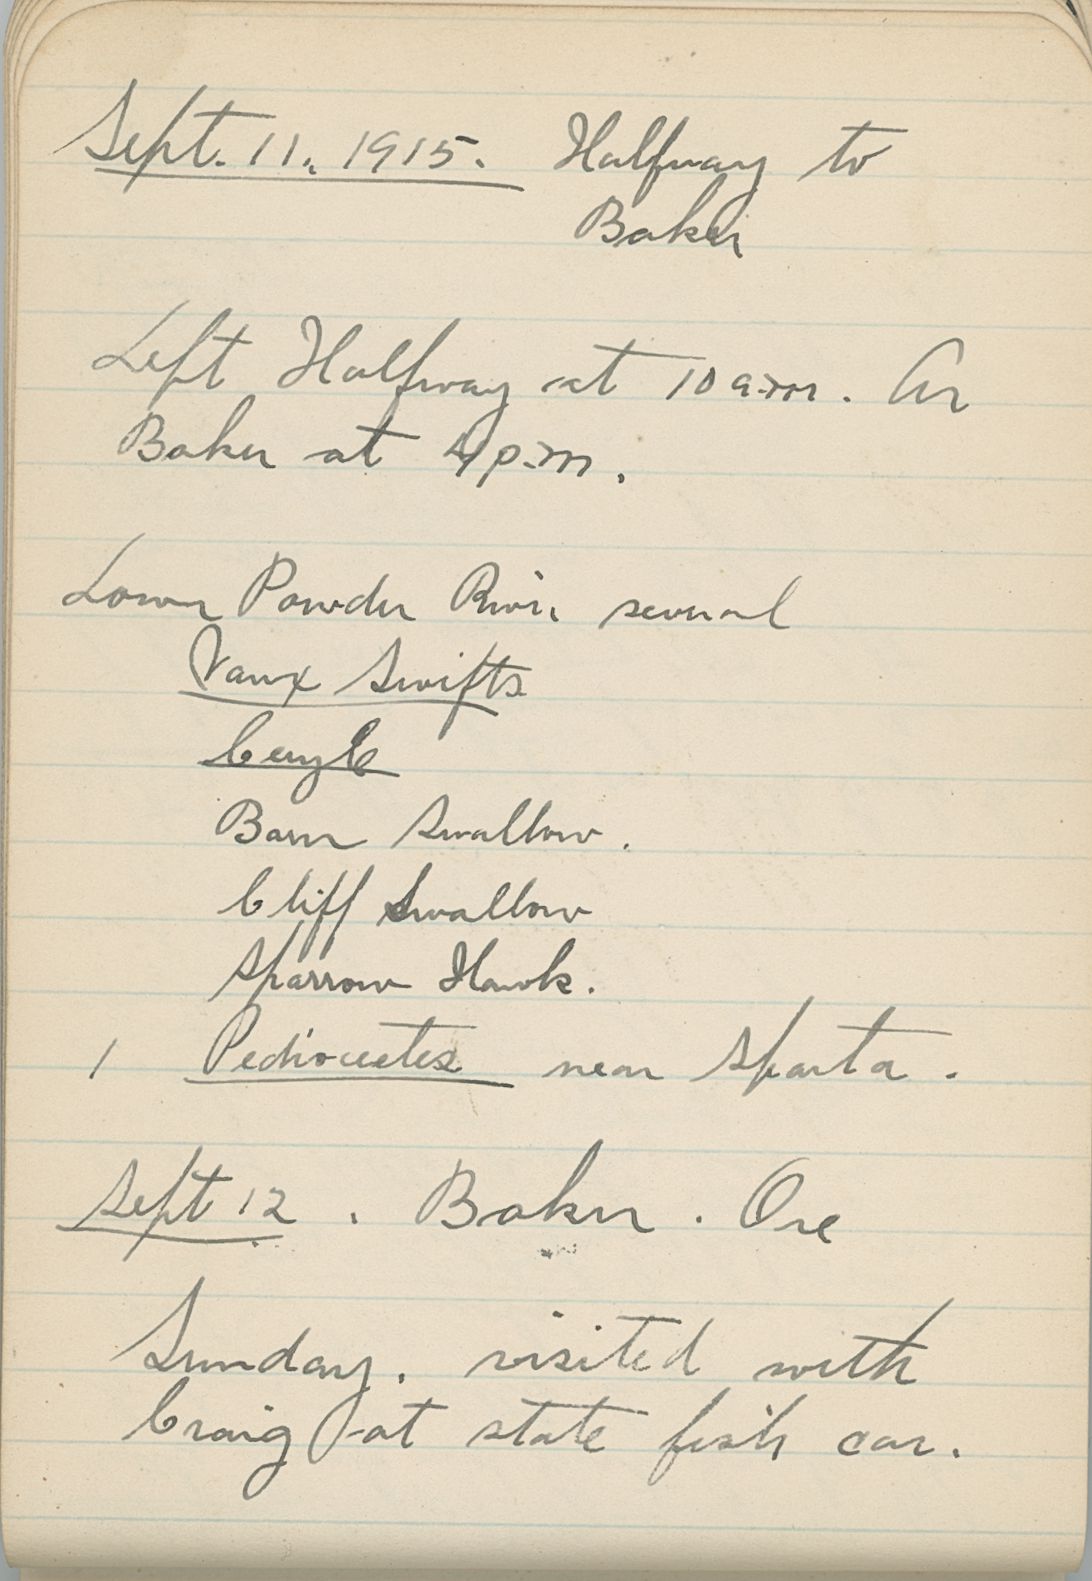 Sept. 11, 1915. Halfway to
Baker
Left Halfway at 10 a.m. Ar
Baker at 4 p.m.
Lower Powder River several
Vaux Swifts
Ceryle
Barn Swallow.
Cliff Swallow
Sparrow Hawk.
1 Pediocetes near Sparta.
Sept 12. Baker. Ore
Sunday. visited with
Craig at state fish car.